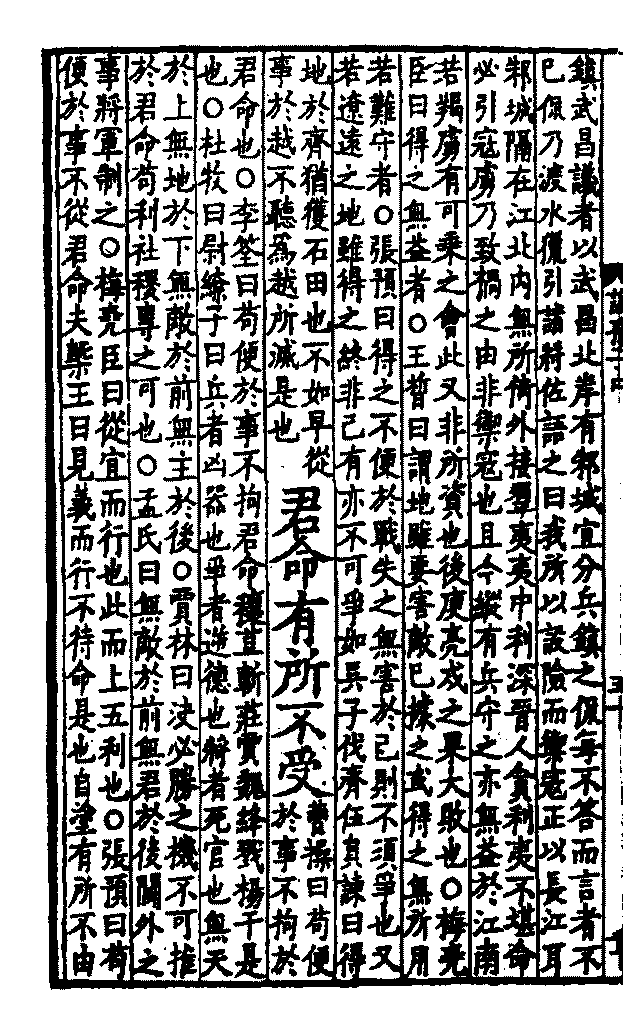 鎮武昌議者以武昌北岸有邾城宜分兵鎮之侃每不答而言者不
已侃乃渡水獵引諸將佐語之曰我所以設險而禦寇正以長江耳
邾城隔在江北內無所倚外接羣夷夷中利深晉人貪利夷不堪命
必引寇虜乃致禍之由非禦寇也且今縱有兵守之亦無益於江南
若羯虜有可乘之會此又非所資也後庾亮戍之果大敗也○梅堯
臣曰得之無益者○王晳曰謂地雖要害敵已據之或得之無所用
若難守者○張預曰得之不便於戰失之無害於己則不須爭也又
若遼遠之地雖得之終非己有亦不可爭如吳子伐齊伍員諫曰得
地於齊猶獲石田也不如早從
事於越不聽爲越所滅是也
君命有所不受
曹操曰苟便
於事不拘於
君命也○李筌曰苟便於事不拘君命穰苴斬莊賈魏絳戮楊干是
也○杜牧曰尉繚子曰兵者凶器也爭者逆德也將者死官也無天
於上無地於下無敵於前無主於後○賈林曰決必勝之機不可推
於君命苟利社稷專之可也○孟氏曰無敵於前無君於後閫外之
事將軍制之○梅堯臣曰從宜而行也此而上五利也○張預曰苟
便於事不從君命夫槩王曰見義而行不待命是也自塗有所不由